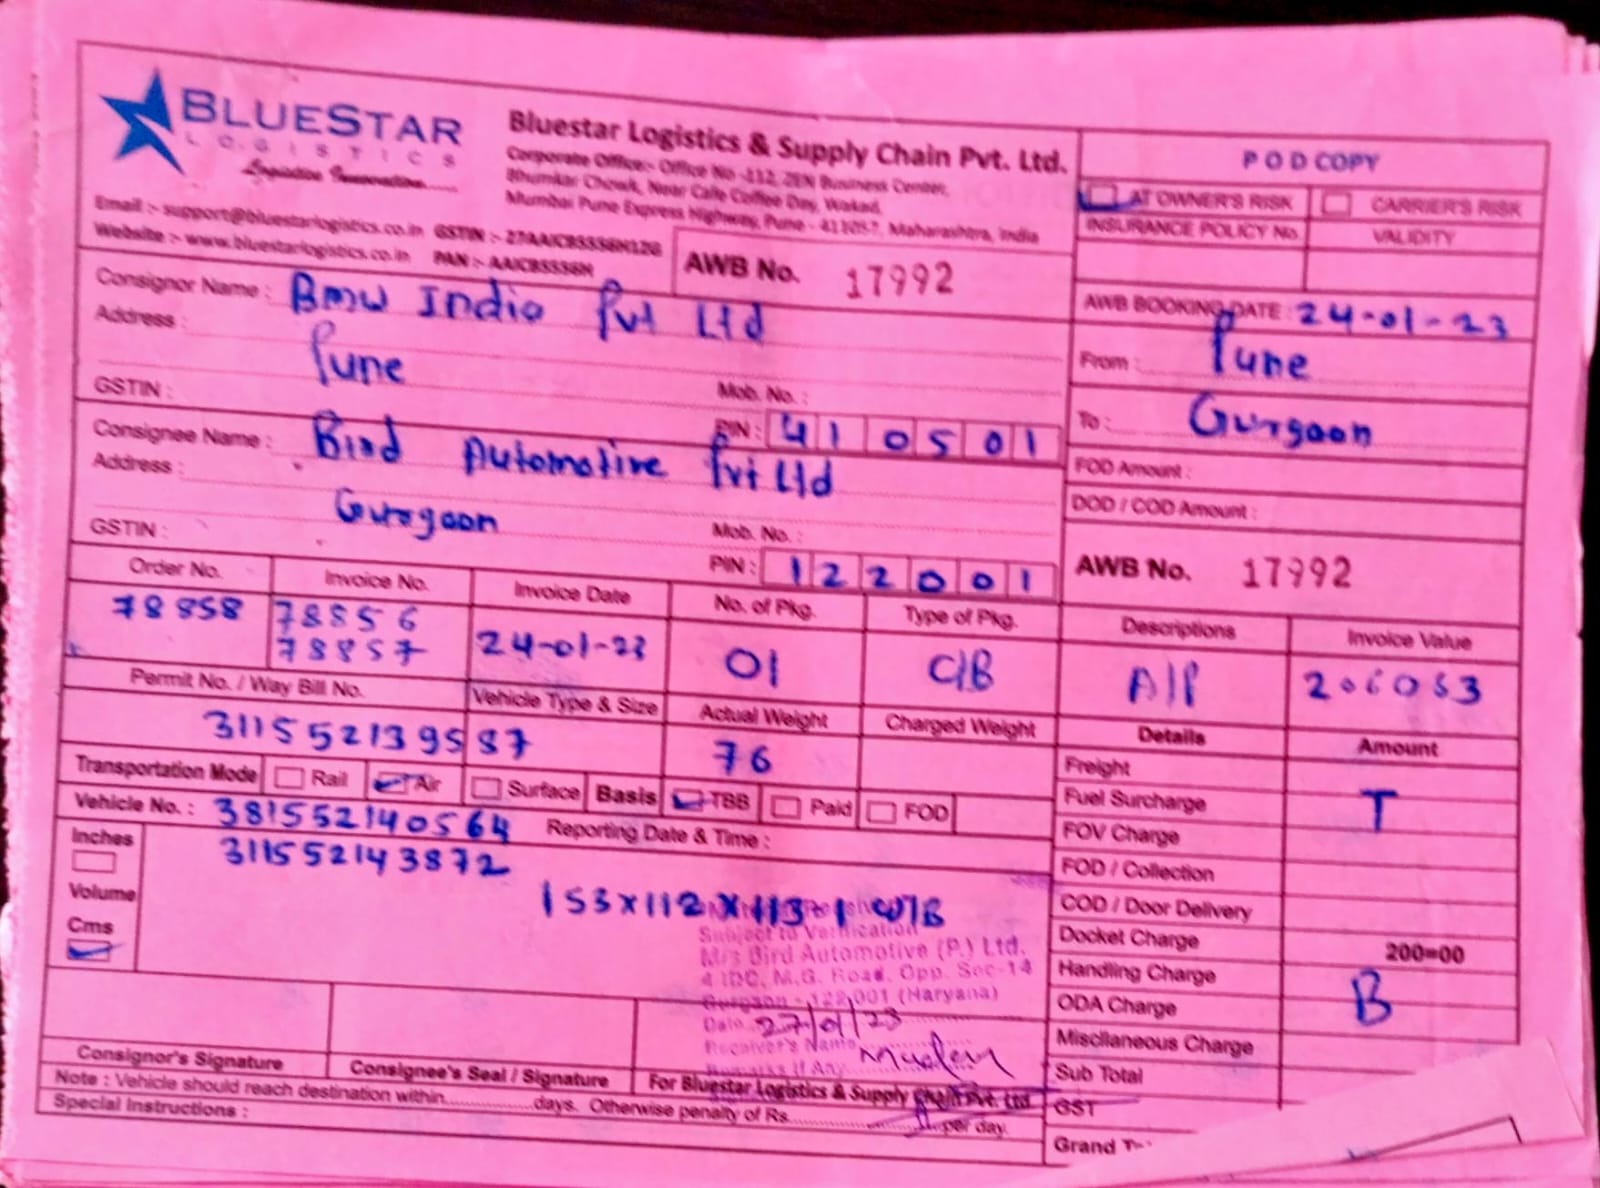 BLUESTAR
LOGISTICS
Logistics Innovation......
Bluestar Logistics & Supply Chain Pvt. Ltd.
Corporate Office:- Office No -112, ZEN Business Center,
Bhumkar Chowk, Near Cafe Coffee Day, Wakad,
Mumbai Pune Express Highway, Pune - 411057, Maharashtra, India
Email :- support@bluestarlogistics.co.in GSTIN :- 27AAICB5556H1ZG
Website :- www.bluestarlogistics.co.in PAN :- AAICB5556H
AWB No. 17992
POD COPY
AT OWNER'S RISK CARRIER'S RISK
INSURANCE POLICY No. VALIDITY
AWB BOOKING DATE : 24-01-23
From : Pune
To : Gurgaon
FOD Amount :
DOD / COD Amount :
AWB No. 17992
Consignor Name : Bmw India Pvt Ltd
Address :
Pune
GSTIN : Mob. No. :
PIN : 410501
Consignee Name : Bird Automotive Pvt Ltd
Address :
Gurgaon
GSTIN : Mob. No. :
PIN : 122001
Order No. Invoice No. Invoice Date No. of Pkg. Type of Pkg. Descriptions Invoice Value
78858 78856 24-01-23 01 C/B A/P
78857
Permit No. / Way Bill No. Vehicle Type & Size Actual Weight Charged Weight
311552139587 76
Transportation Mode Rail Air Surface Basis TBB Paid FOD
Vehicle No. : 381552140564 Reporting Date & Time :
311552143872
Inches
Volume
Cms
153x112x113-1
Subject to Verification
M/s Bird Automotive (P.) Ltd.
4 IDC, M.G. Road. Opp. Sec-14
Gurgaon - 122001 (Haryana)
Date 27/01/23
Receiver's Name
Remarks If Any
Details Amount
Freight
Fuel Surcharge T
FOV Charge
FOD / Collection
COD / Door Delivery
Docket Charge 200=00
Handling Charge
ODA Charge B
Miscllaneous Charge
Sub Total
GST
Grand
Consignor's Signature Consignee's Seal / Signature For Bluestar Logistics & Supply Chain Pvt. Ltd
Note : Vehicle should reach destination within..................days. Otherwise penalty of Rs..............................per day.
Special Instructions :